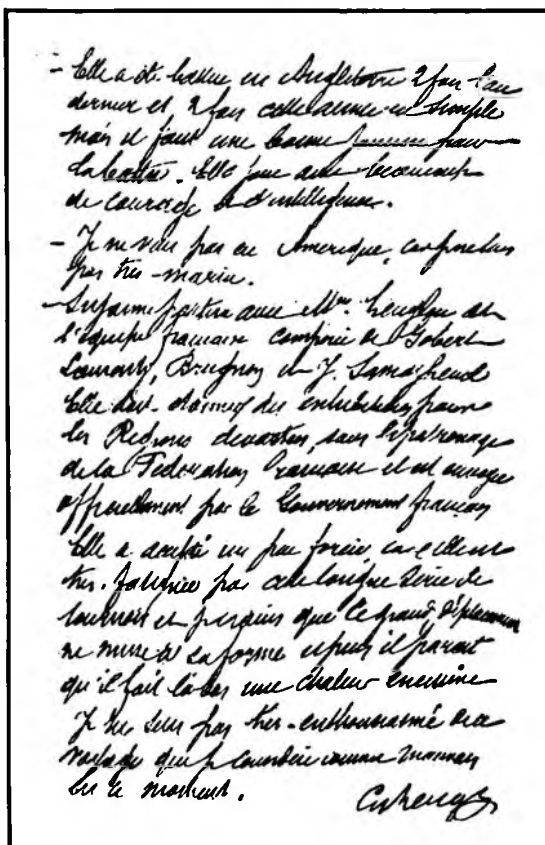 - Elle a été battue en Angleterre 2 fois l'an
dernier et 2 fois cette année en simple
mais il faut une bonne joueuse pour
la battre. Elle joue avec beaucoup
de courage et d'intelligence.
- Je ne vais pas en Amérique, car je ne suis
pas très-marin.
- Suzanne partira avec Mme Lenglen et
l'équipe française composée de Gobert
Laurentz, Brugnon et J. Samazheuil
Elle doit donner des exhibitions pour
les Régions dévastées, sous le patronage
de la Fédération Française et est
officiellement par le Gouvernement français
Elle a accepté un peu forcée, car elle est
très fatiguée par une longue série de
tournois et je crains que ce grand déplacement
ne nuise à sa forme et puis il parait
qu'il fait là-bas une chaleur
Je ne suis pas très-enthousiasmé de ce
voyage que je considère comme mauvais
en ce moment.